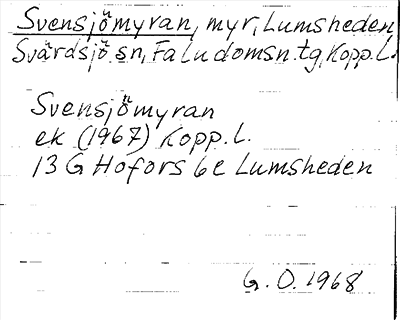 Svensjömyran, myr, Lumsheden
Svärdsjö sn, Falu domsn.tg, Kopp.l.
Svensjömyran
ek (1967) Kopp.l.
13 G Hofors 6e Lumsheden
G.O. 1968